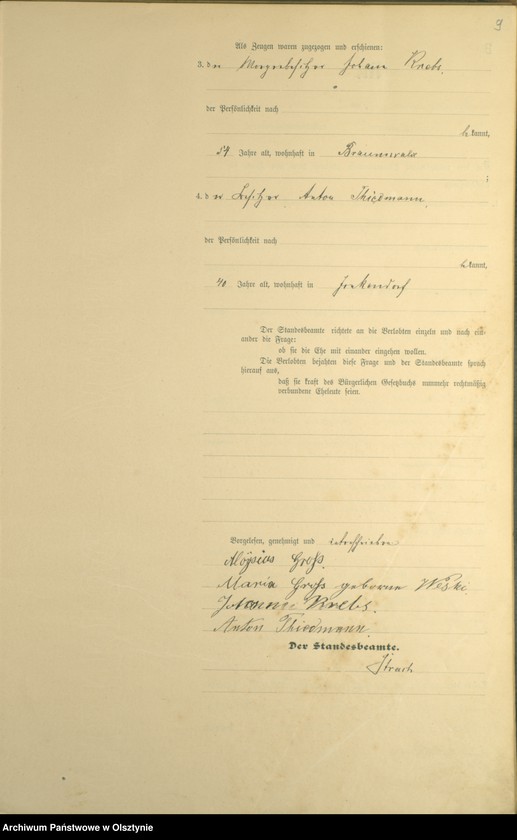 9
Als Zeugen waren zugezogen und erschienen:
3. der Johann Krebs,
der Persönlichkeit nach
bekannt,
54 Jahre alt, wohnhaft in Braunswalde
;
4. der Besitzer Anton Thiedmann,
der Persönlichkeit nach
bekannt,
40 Jahre alt, wohnhaft in Jonkendorf
Der Standesbeamte richtete an die Verlobten einzeln und nach ein-
ander die Frage:
ob sie die Ehe mit einander eingehen wollen.
Die Verlobten bejahten diese Frage und der Standesbeamte sprach
hierauf aus,
daß sie kraft des Bürgerlichen Gesetzbuchs nunmehr rechtmäßig
verbundene Eheleute seien.
Vorgelesen, genehmigt und unterschrieben
Aloysius Groß.
Maria Groß geborene
Johann Krebs.
Anton Thiedmann.
Der Standesbeamte.
Archiwum Państwowe w Olsztynie